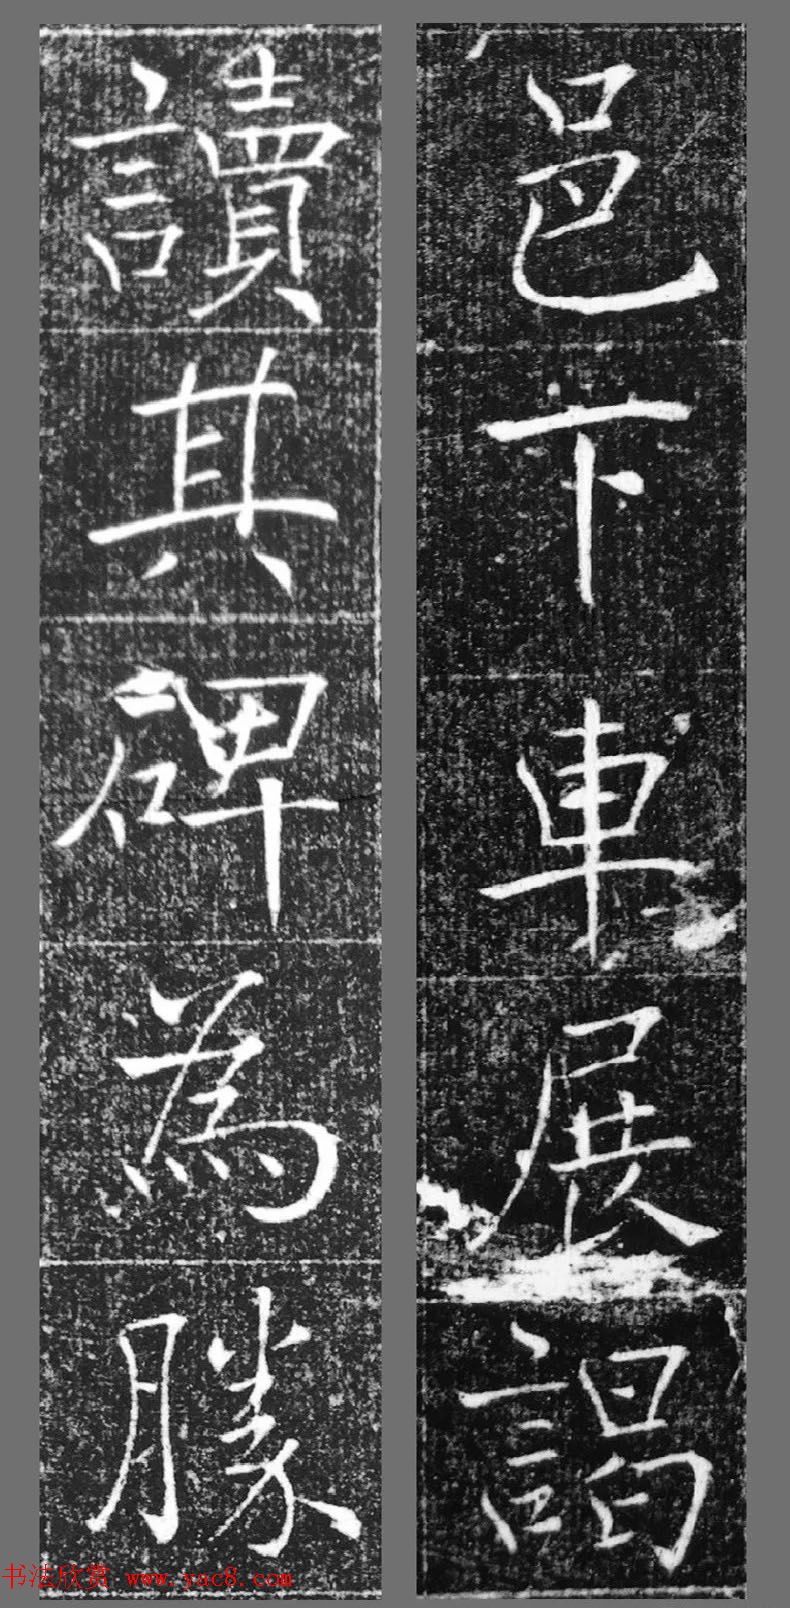 邑下車展謁
讀其碑為勝
书法欣赏 www.yac8.com